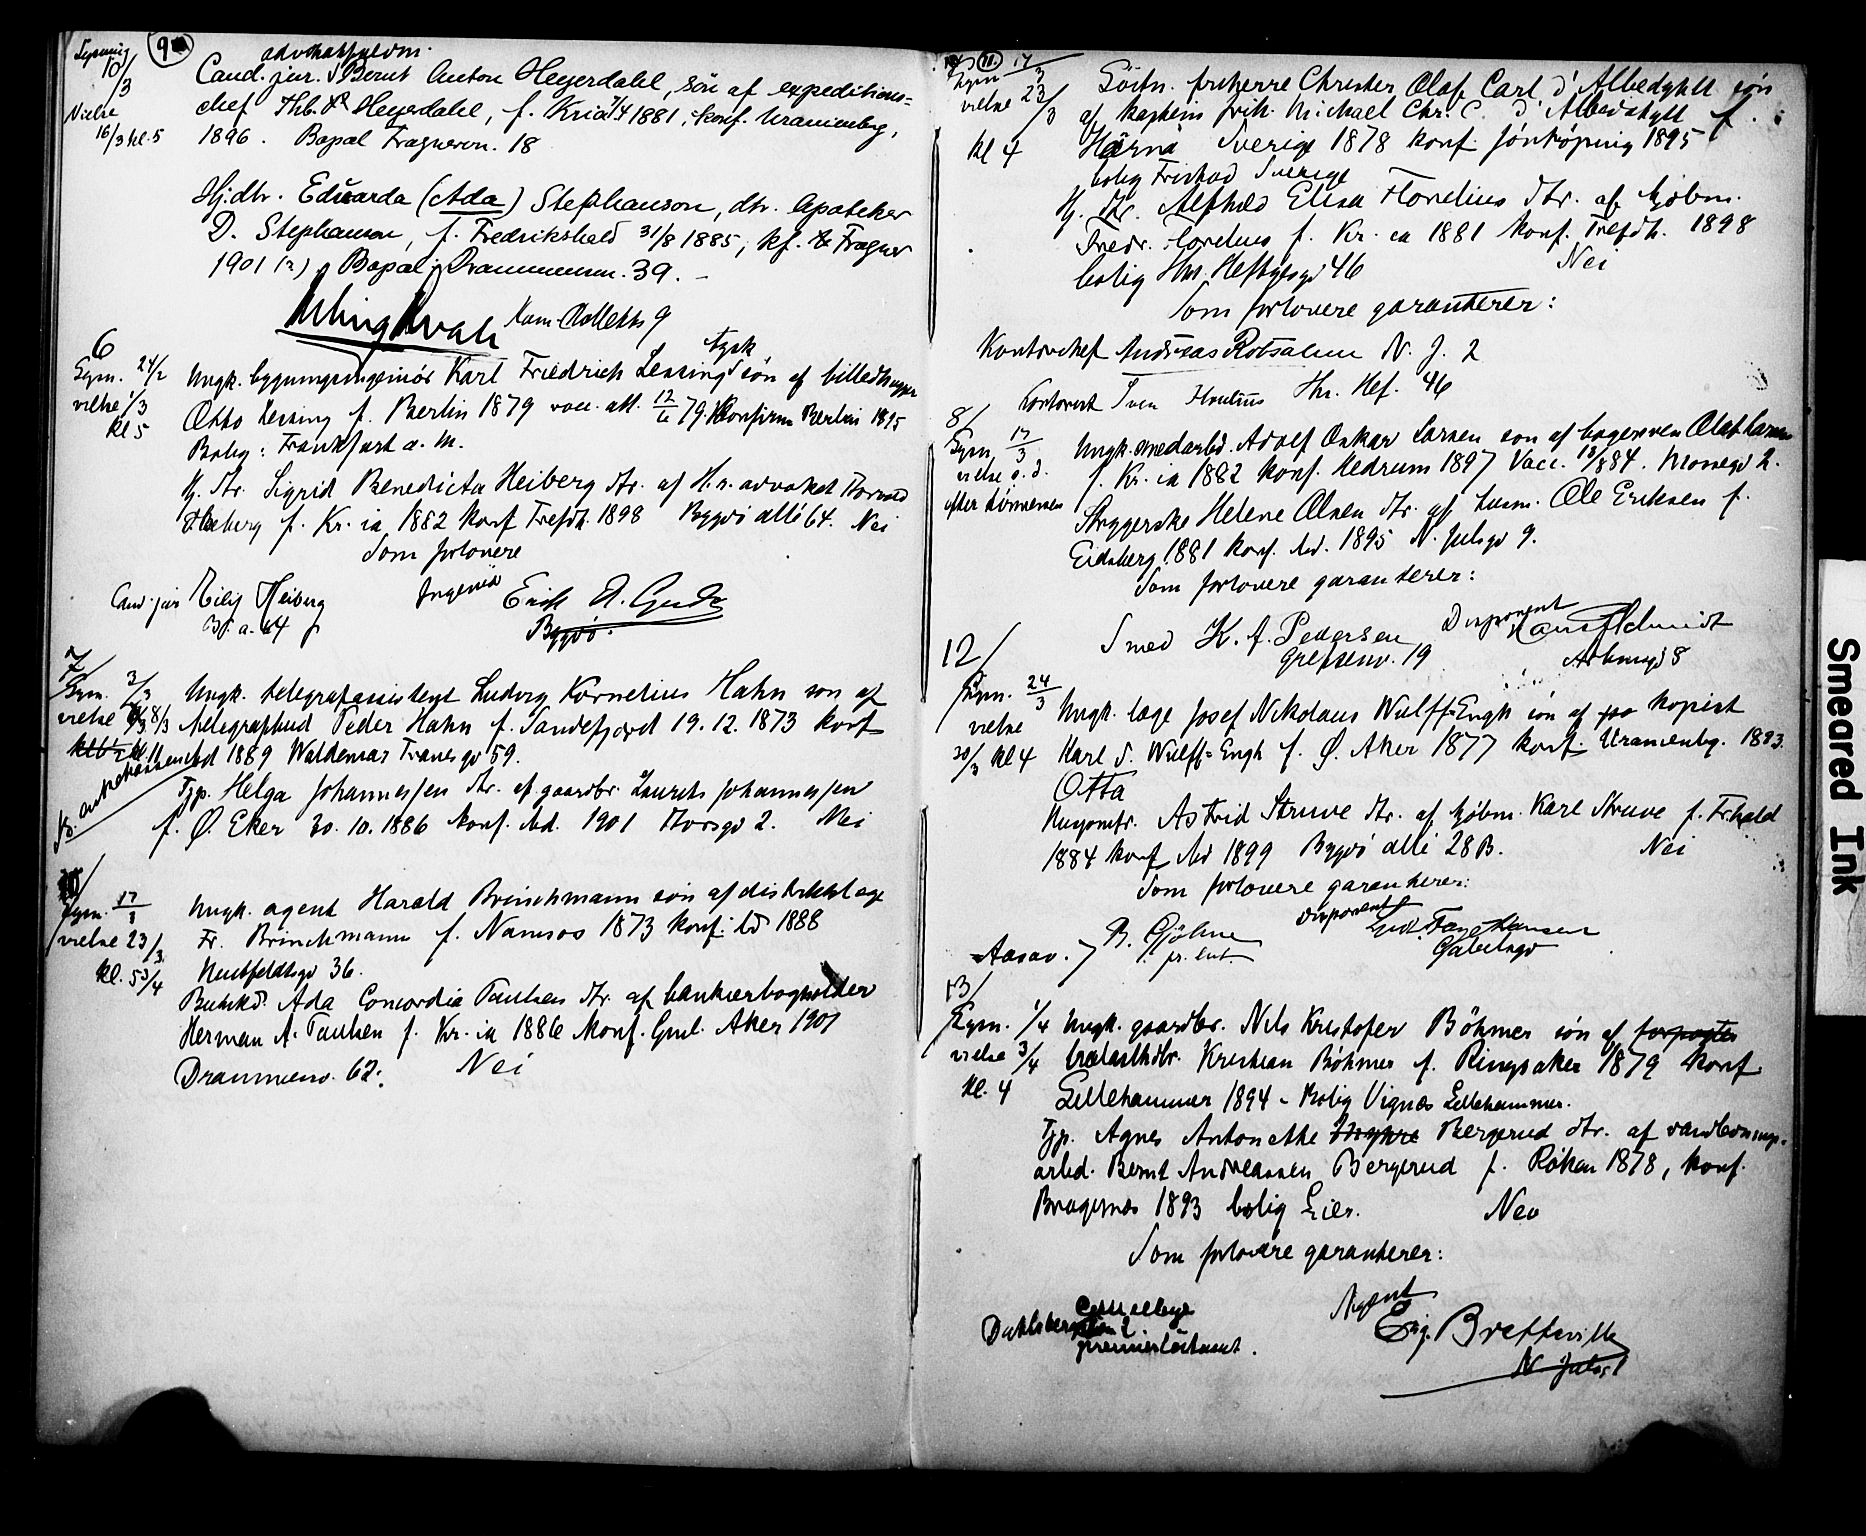 Lysning 10/3
Vielse 16/3 kl. 5
9
advokatfuldm.
Cand. jur. Bernt Anton Heyerdahl, søn af expeditions-
chef Thb. Heyerdahl, f. Kria 7/4 1881, konf. Uranienborg,
1896. Bopæl Fragnerv. 18
Hj. dtr. Edvarda (Ada) Stephanson, dtr. Apoteker
D. Stephanson, f. Fredrikshald 31/8 1885, kf. Fragner
1901 (?) Bopæl Drammensv. 39.
Kam. Colletts 9
6
Lysn. 24/2
vielse 1/3
kl 5
tysk
Ungk. bygningsingeniør Karl Friedrich Lessing søn af billedhugger
Otto Lessing f. Berlin 1879 vacc. att. 12/6 79. Konfirm Berlin 1895
Bolig: Frankfurt a. M.
Hj. dtr. Sigrid Benedicta Heiberg dtr. af H.r. advokat
Heiberg f. Kr.ia 1882 konf Trefdh. 1898 Bygdø allé 64. Nei
Som forlovere
Cand. jur Heiberg
B. a. 64
Ingeniør Erich
Bygdø.
7/
Lysn. 3/3
vielse 8/3
Ungk. telegrafassistent Ludvig Kornelius Hahn søn af
telegrafbud Peder Hahn f. Sandefjord 19.12.1873 konf
sted 1889 Waldemar Tranes gd 59.
Tjp. Helga Johannessen dtr. af gaardbr. Laurits Johannessen
f. Ø. Eker 30.10.1886 konf. sted. 1901 Thorsgd 2. Nei
10/
Lysn. 17/3
vielse 23/3
kl. 5 3/4
Ungk. agent Harald Brinchmann søn af distriktslæge
Fr. Brinchmann f. Namsos 1873 konf. sd 1888
Neubfeldtsgd 36.
Ada Concordia Paulsen dtr. af bankierbogholder
Herman A. Paulsen f. Kr.ia 1886 konf. Gml. Aker 1901
Drammensv. 62. Nei
11
Lysn 17/3
vielse 23/3
kl 4
Löitn. friherre Christer Olof Carl d'Albedyhll søn
af kaptein frih. Michael Chr. C. d'Albedyhll f.
Härna Sverige 1878 konf. Jönköping 1895
bolig Fristad Sverige
Hj. dtr. Alfhild Elisa Florelius dtr. af kjøbm.
Fredr. Florelius f. Kr.ia 1881 konf. Trefdh. 1898
bolig Thr. Heftyesgd 46 Nei
Som forlovere garanterer:
Kontorchef Andreas N. J. 2
Kontorist Florelius Thr. Hef. 46
8/
Lysn. 17/3
vielse s. d.
efter tjenesten
Ungk. smedarbd. Adolf Oskar Larsen søn af bagersven Olaf Larsen
f. Kr.ia 1882 konf. Hedrum 1897 Vacc. 18/8 84. Mossegd 2.
Strygerske Helene Olsen dtr. af husm. Ole Eriksen f.
Eidsberg 1881 konf. sted. 1895 N. Juelsgd 9.
Som forlovere garanterer:
Smed K. A. Pedersen
Grefsenv. 19
Disponent Schmidt
12/
Lysn. 24/3
vielse
30/3 kl 4
Ungk. læge Josef Nikolaus Wulff-Engh søn af kopist
Karl S. Wulff-Engh f. Ø. Aker 1877 konf. Uranienbg. 1893.
Otta
Huijomfr. Astrid Struve dtr. af kjøbm. Karl Struve f. Fr.hald
1884 konf sted 1899 Bygdø allé 28 B. Nei
Som forlovere garanterer:
B. Gjölme
pr. lut.
Disponent
Hansen
13/
Lysn. 1/4
vielse 3/4
kl. 4
Ungk. gaardbr. Nils Kristofer Böhmer søn af forpagter
trælasthdlr. Kristian Böhmer f. Ringsaker 1879 konf
Lillehammer 1894 - Bolig Vignæs Lillehammer.
Tjp. Agnes Antonette Bergerud dtr. af vandlednings-
arbd. Bernt Andreassen Bergerud f. Røken 1878, konf.
Bragernæs 1893 bolig Lier. Nei
Som forlovere garanterer:
premierløitnant.
Agent
Eug. Bretteville
N. Juels 1
Smeared Ink